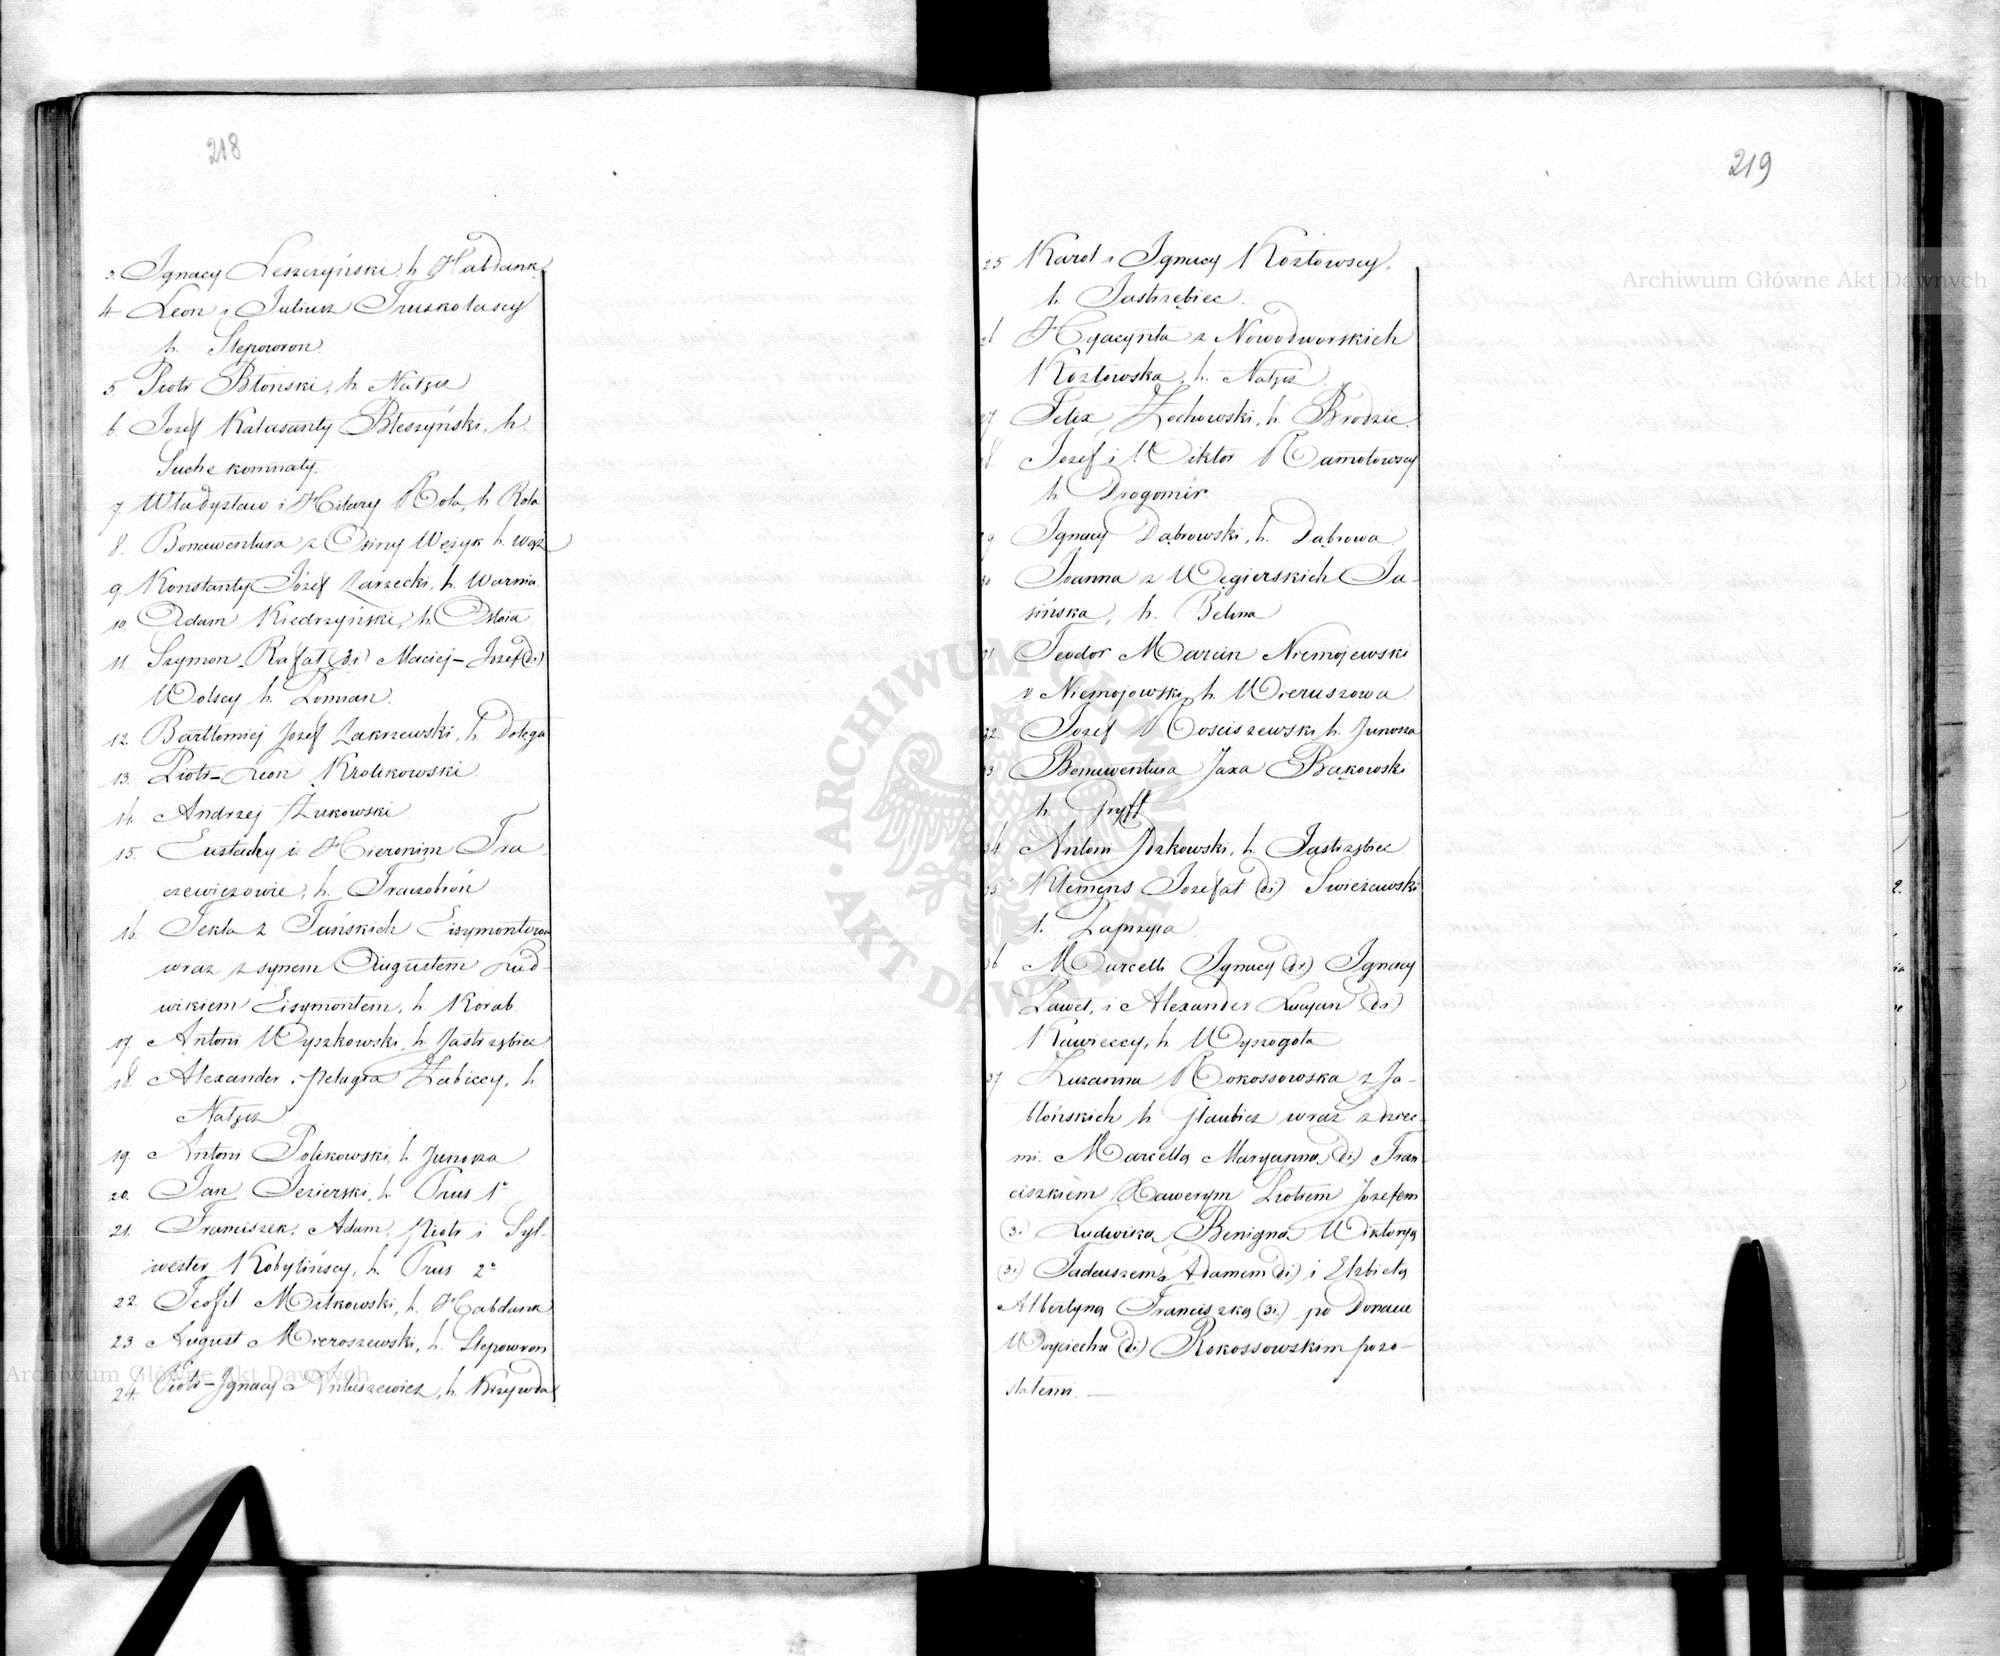 218
3. Ignacy Leszczyński, h. Habdank
4. Leon i Juliusz Truskolascy
h. Slepowron
5. Piotr Błoński, h. Nałęcz
6. Józef Kalasanty Błeszyński, h.
Suche komnaty.
7. Władysław i Hilary Rola, h. Rola
8. Bonawentura z Osiny Wężyk h. Wąż
9. Konstanty Józef Zarzecki, h. Warnia
10. Adam Kiedrzyński, h. Ostoia
11. Szymon-Rafał (2i.) Maciej-Józef (2i.)
Wolscy h. Pomian.
12. Bartłomiej Józef Zakrzewski, h. Dołęga
13. Piotr-Leon Królikowski
14. Andrzej Żukowski
15. Eustachy i Hieronim Tra-
czewiczowie, h. Traczobrón
16. Tekla z Tańskich Eisymontowa
wraz z synem Augustem Lud-
wikiem Eisymontem, h. Korab.
17. Antoni Wyszkowski, h. Jastrzębiec
18. Alexander i Pelagia Żabiccy, h.
Nałęcz
19. Antoni Polikowski, h. Junosza
20. Jan Jezierski, h. Prus 1º
21. Franciszek, Adam, Piotr i Syl-
wester Kobylińscy, h. Prus 2º
22. Teofil Mitkowski, h. Habdank
23. August Mieroszewski, h. Slepowron
24. Piotr-Ignacy Antuszewicz, h. Krzywda
219
25 Karol i Ignacy Kozłowscy,
h. Jastrzębiec.
Hyacynta z Nowodworskich
Kozłowska, h. Nałęcz
27 Felix Żochowski, h. Brodzic.
28. Józef i Wiktor Ramotowscy
h. Drogomir
29 Ignacy Dąbrowski, h. Dąbrowa
30 Joanna z Węgierskich Ja-
sińska, h. Belina
31 Teodor Marcin Niemojewski
v Niemojowski, h. Wieruszowa
32. Józef Rościszewski h. Junosza
33 Bonawentura Jaxa Bąkowski
h. Gryff
34 Antoni Idzkowski, h. Jastrzębiec
35 Klemens Jozefat (2i.) Swieżawski
h. Paprzyca
36 Marcelli Ignacy (2i.) Ignacy
Paweł, i Alexander Lucyan (2i.)
Kawieccy, h. Wyszogota
37 Zuzanna Rokossowska z Ja-
błońskich h. Glaubicz wraz z dzieć-
mi. Marcellą Maryanną (2i.) Fran-
ciszkiem Xawerym Piotrem Józefem
(3i.) Ludwiką Benigną Wiktoryą
(3i.) Tadeuszem Adamem (2i.) i Elżbietą
Albertyną Franciszką (3i.) po Donacie
Woyciechu (2i.) Rokossowskim pozo-
stałemi. —
Archiwum Główne Akt Dawnych
ARCHIWUM GŁÓWNE · AKT DAWNYCH ·
Archiwum Główne Akt Dawnych